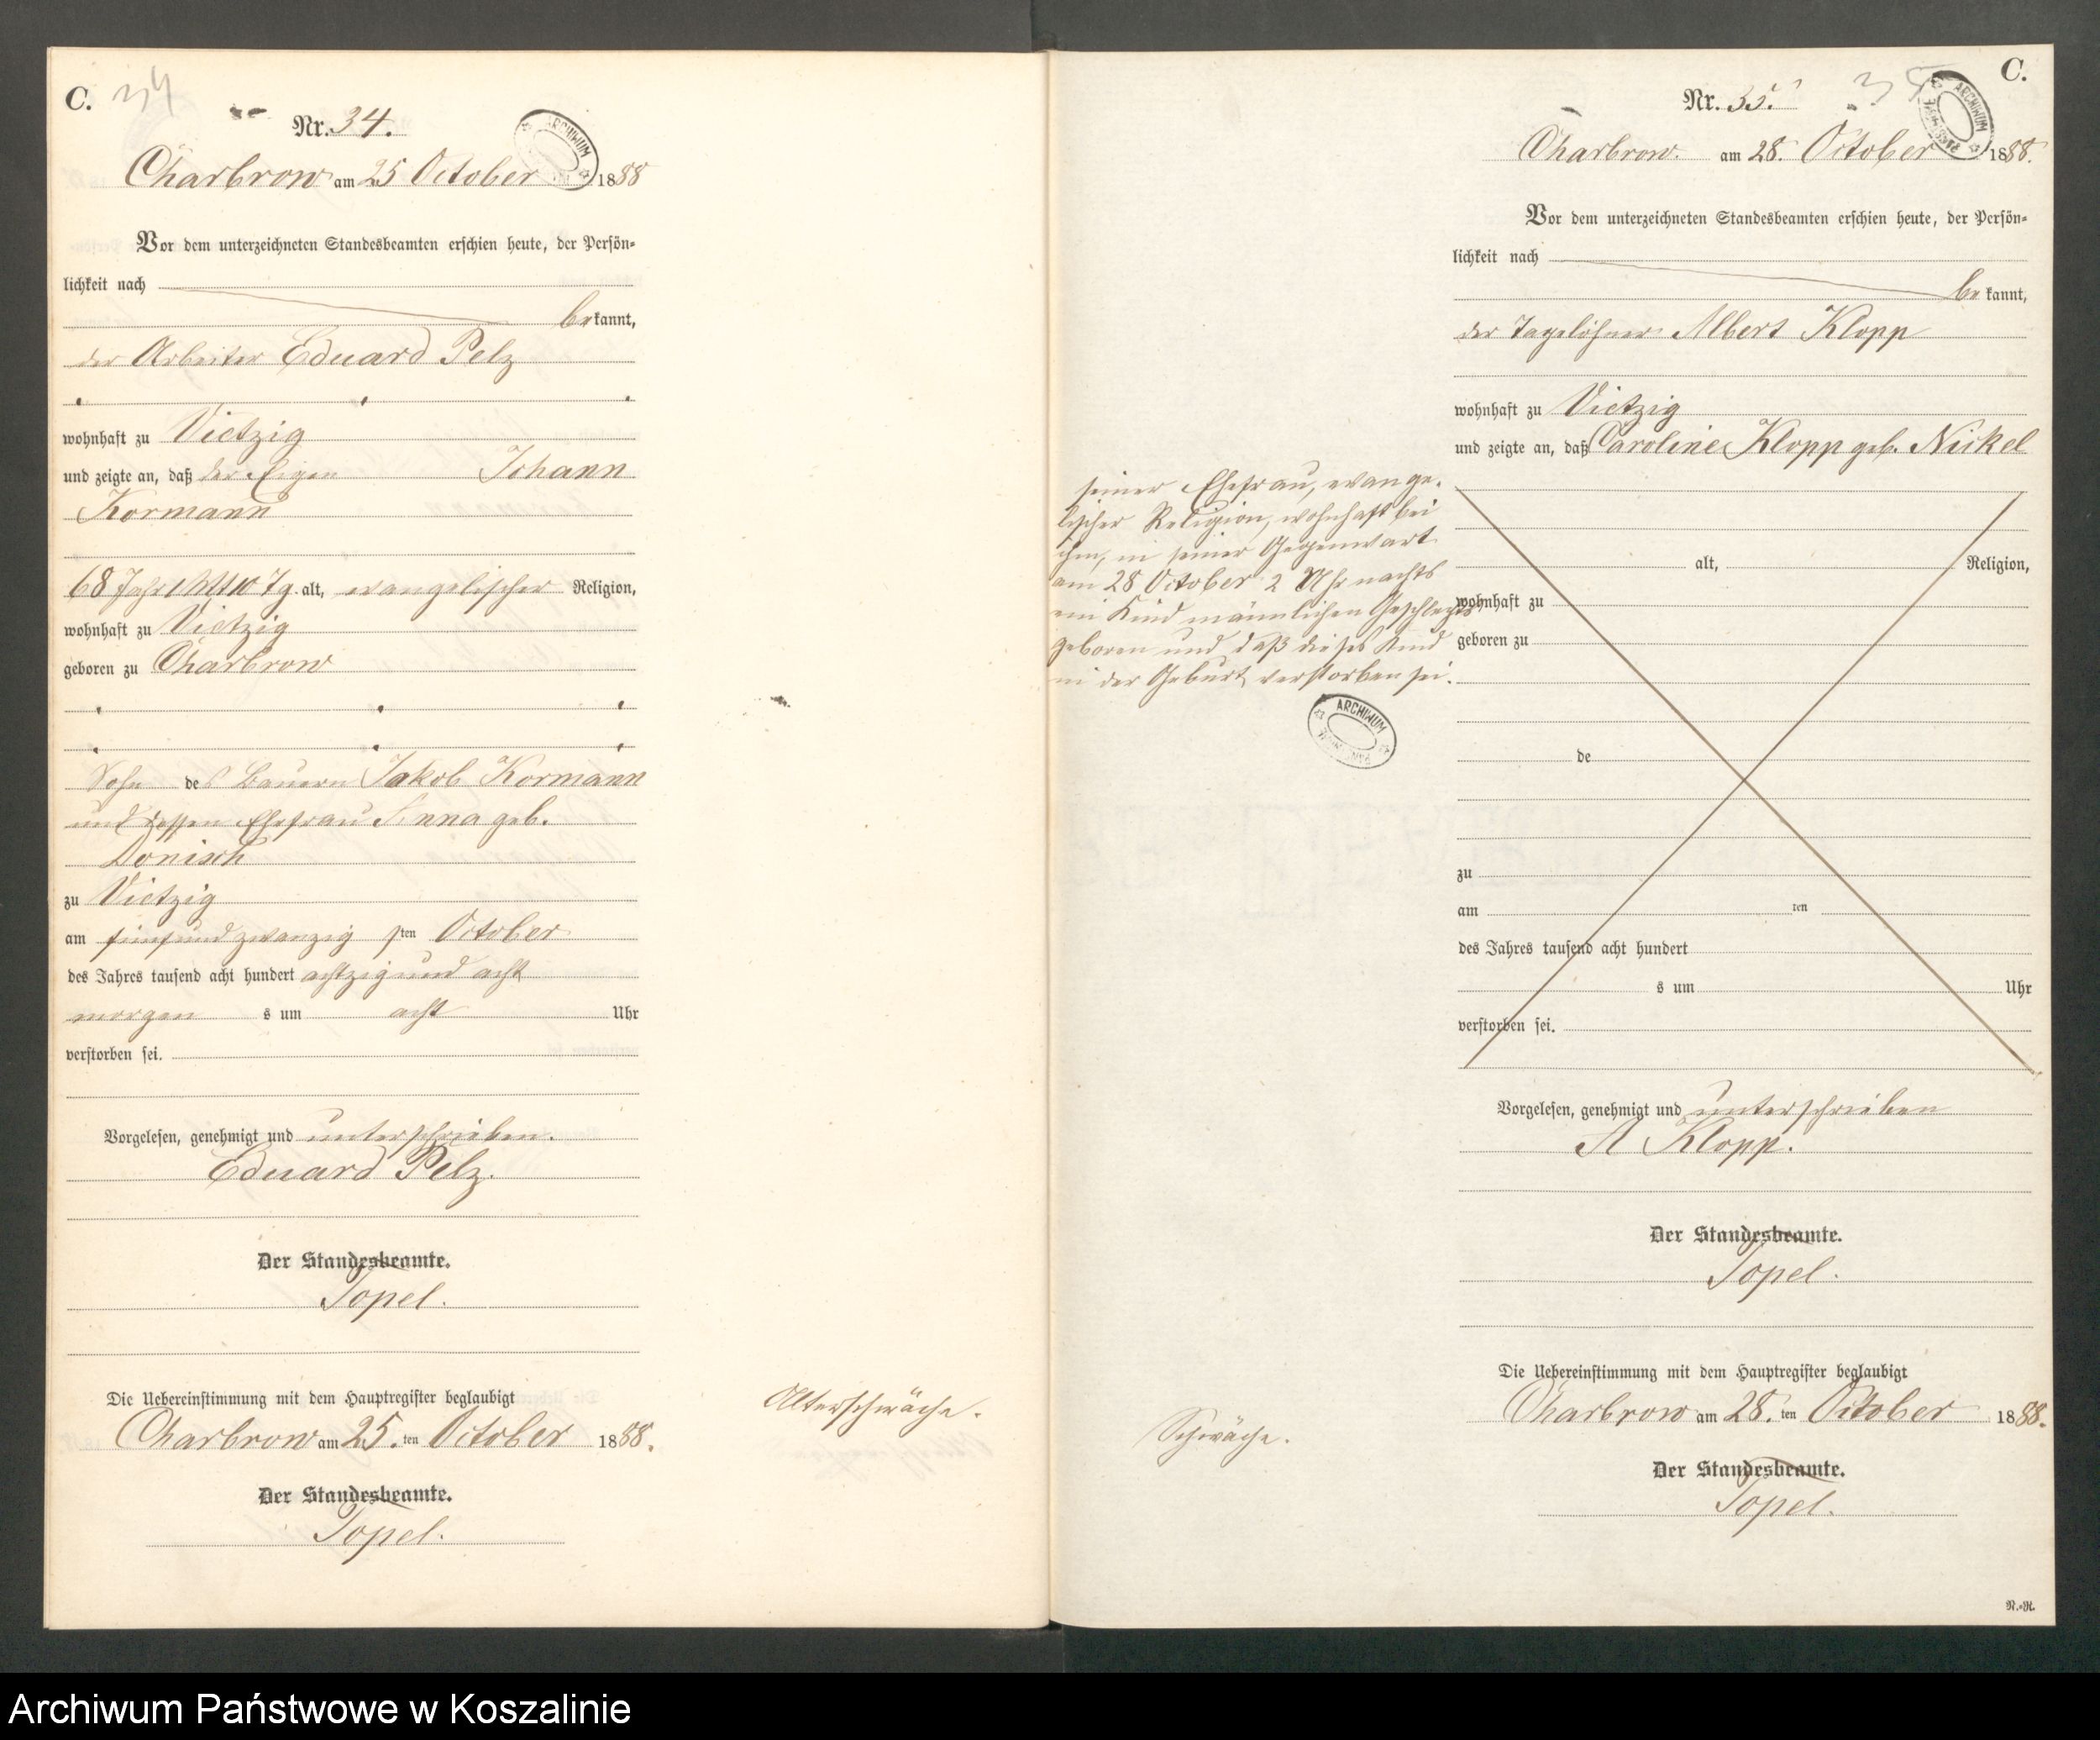 C. 34
Nr. 34.
ARCHIWUM
Charbrow am 25 October 1888
Vor dem unterzeichneten Standesbeamten erschien heute, der Persön-
lichkeit nach
bekannt,
der Arbeiter Eduard Pelz
wohnhaft zu Vietzig
und zeigte an, daß der Johann
Kormann
68 Jahr 1 Mt 10 Tg. alt, evangelischer Religion,
wohnhaft zu Vietzig
geboren zu Charbrow
Sohn des Bauern Jakob Kormann
und dessen Ehefrau Anna geb.
Donisch
zu Vietzig
am fünfundzwanzigsten October
des Jahres tausend acht hundert achtzig und acht
morgens um acht Uhr
verstorben sei.
Vorgelesen, genehmigt und unterschrieben.
Eduard Pelz.
Der Standesbeamte.
Topel.
Die Uebereinstimmung mit dem Hauptregister beglaubigt
Charbrow am 25. ten October 1888.
Der Standesbeamte.
Topel.
Alterschwäche.
C.
Nr. 35. 35
ARCHIWUM
Charbrow. am 28. October 1888.
Vor dem unterzeichneten Standesbeamten erschien heute, der Persön-
lichkeit nach
bekannt,
der Tagelöhner Albert Klopp
wohnhaft zu Vietzig
und zeigte an, daß Caroline Klopp geb. Nickel
seiner Ehefrau, evange-
lischer Religion, wohnhaft bei
ihm, in seiner Gegenwart
am 28 October 2 Uhr nachts
ein Kind männlichen Geschlechts
geboren und daß dieses Kind
in der Geburt verstorben sei.
ARCHIWUM
alt, Religion,
wohnhaft zu
geboren zu
de
zu
am ten
des Jahres tausend acht hundert
s um Uhr
verstorben sei.
Vorgelesen, genehmigt und unterschrieben
A Klopp.
Der Standesbeamte.
Topel.
Die Uebereinstimmung mit dem Hauptregister beglaubigt
Charbrow am 28. ten October 1888.
Schwäche.
Der Standesbeamte.
Topel.
N.-R.
Archiwum Państwowe w Koszalinie